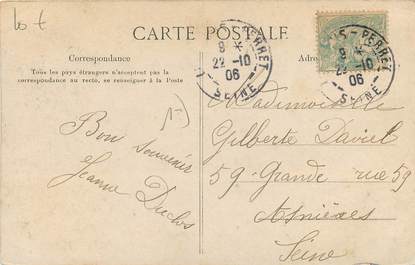 CARTE POSTALE
Correspondance
Tous les pays étrangers n'acceptent pas la
correspondance au recto, se renseigner à la Poste
Adre
PERRET
9 *
22-10
06
SEINE
IS-PERRET
9 *
22-10
06
SEINE
Bon souvenir
Jeanne Duclos
Mademoiselle
Gilberte Daviet
59-Grande rue 59
Asnières
Seine